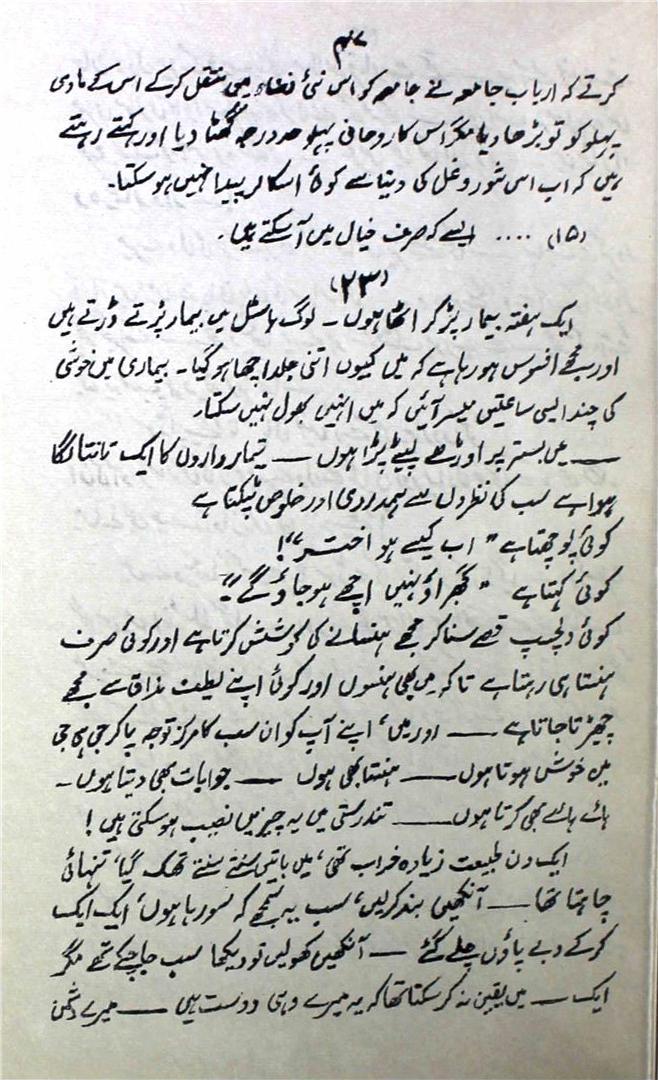 ۴۷
کرتے کہ ارباب جامعہ نے جامعہ کو اس نئی فضاء میں منتقل کرکے اس کے مادی
پہلو کو تو بڑھا دیا مگر اس کا روحانی پہلو حد درجہ گھٹا دیا اور کہتے رہتے
ہیں کہ اب اس شور و غل کی دنیا سے کوئی اسکالر پیدا نہیں ہو سکتا۔
(۱۵) .... ایسے کہ صرف خیال میں آ سکتے ہیں۔
(۲۳)
ایک ہفتہ بیمار پڑ کر اٹھا ہوں۔ لوگ ہاسٹل میں بیمار پڑتے ڈرتے ہیں
اور مجھے افسوس ہو رہا ہے کہ میں کیوں اتنی جلد اچھا ہو گیا۔ بیماری میں خوشی
کی چند ایسی ساعتیں میسر آئیں کہ میں انہیں بھول نہیں سکتا۔
—— میں بستر پر اوڑھے لپیٹے پڑا ہوں —— تیمار داروں کا ایک تانتا لگا
ہوا ہے سب کی نظروں سے ہمدردی اور خلوص ٹپکتا ہے
کوئی پوچھتا ہے " اب کیسے ہو اختر "!
کوئی کہتا ہے " گھبراؤ نہیں اچھے ہو جاؤ گے "
کوئی دلچسپ قصے سنا کر مجھے ہنسانے کی کوشش کرتا ہے اور کوئی صرف
ہنستا ہی رہتا ہے تاکہ میں بھی ہنسوں اور کوئی اپنے لطیف مذاق سے مجھے
چھیڑتا جاتا ہے —— اور میں، اپنے آپ کو ان سب کا مرکز توجہ پا کر جی ہی جی
میں خوش ہوتا ہوں —— ہنستا بھی ہوں —— جوابات بھی دیتا ہوں۔
ہائے ہائے بھی کرتا ہوں —— تندرستی میں یہ چیزیں نصیب ہو سکتی ہیں!
ایک دن طبیعت زیادہ خراب تھی، میں باتیں سنتے سنتے تھک گیا، تنہائی
چاہتا تھا —— آنکھیں بند کر لیں، سب یہ سمجھے کہ سو رہا ہوں، ایک ایک
کرکے دبے پاؤں چلے گئے —— آنکھیں کھولیں تو دیکھا سب جا چکے تھے مگر
ایک —— میں یقین نہ کر سکتا تھا کہ یہ میرے وہی دوست ہیں —— میرے دشمن